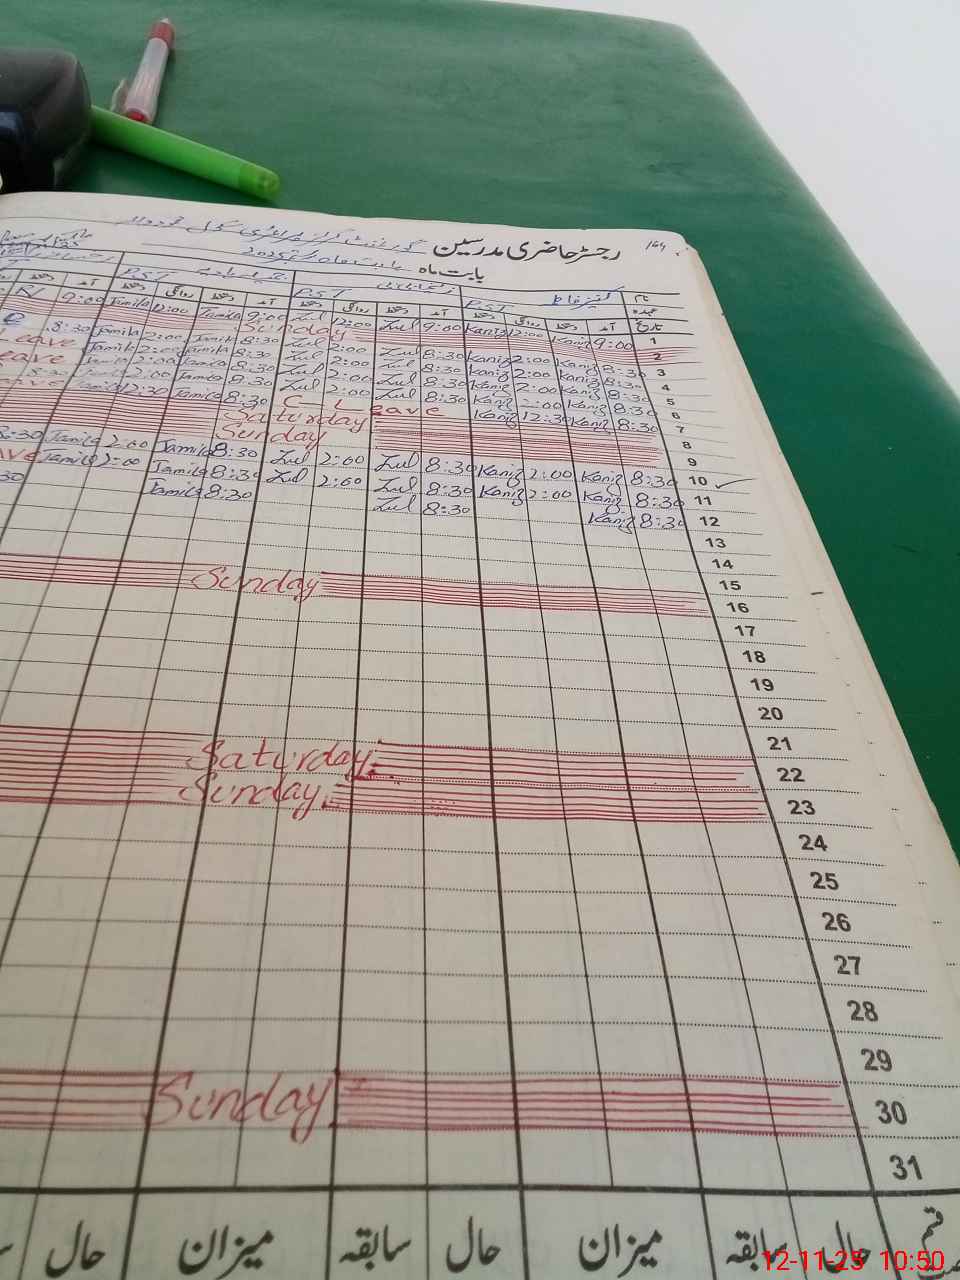 164
رجسٹر حاضری مدرسین گورنمنٹ گرلز پرائمری سکول
بابت ماہ 2025
نام کنیز فاطمہ
عہدہ P.S.T P.S.T P.S.T
تاریخ آمد دستخط روانگی دستخط آمد دستخط روانگی دستخط آمد دستخط روانگی دستخط
1 9:00 Kaniz 12:00 Kaniz 9:00 Zul 12:00 Zul 9:00 Jamila 12:00 Jamila 9:00
2 Sunday
3 8:30 Kaniz 2:00 Kaniz 8:30 Zul 2:00 Zul 8:30 Jamila 2:00 Jamila 8:30
4 8:30 Kaniz 2:00 Kaniz 8:30 Zul 2:00 Zul 8:30 Jamila 2:00 Jamila Leave
5 8:30 Kaniz 2:00 Kaniz 8:30 Zul 2:00 Zul 8:30 Jamila 2:00 Jamila Leave
6 8:30 Kaniz 2:00 Kaniz 8:30 Zul 2:00 Zul 8:30 Jamila 2:00 Jamila 8:30
7 8:30 Kaniz 12:30 Kaniz C-Leave 8:30 Jamila 12:30 Jamila Leave
8 Saturday
9 Sunday
10 8:30 Kaniz 2:00 Kaniz 8:30 Zul 2:00 Zul 8:30 Jamila 2:00 Jamila 8:30
11 8:30 Kaniz 2:00 Kaniz 8:30 Zul 2:00 Zul 8:30 Jamila 2:00 Jamila
12 8:30 Kaniz 8:30 Zul 8:30 Jamila
13
14
15
16 Sunday
17
18
19
20
21
22 Saturday
23 Sunday
24
25
26
27
28
29
30 Sunday
31
حال سابقہ میزان حال سابقہ میزان حال
12-11-25 10:50